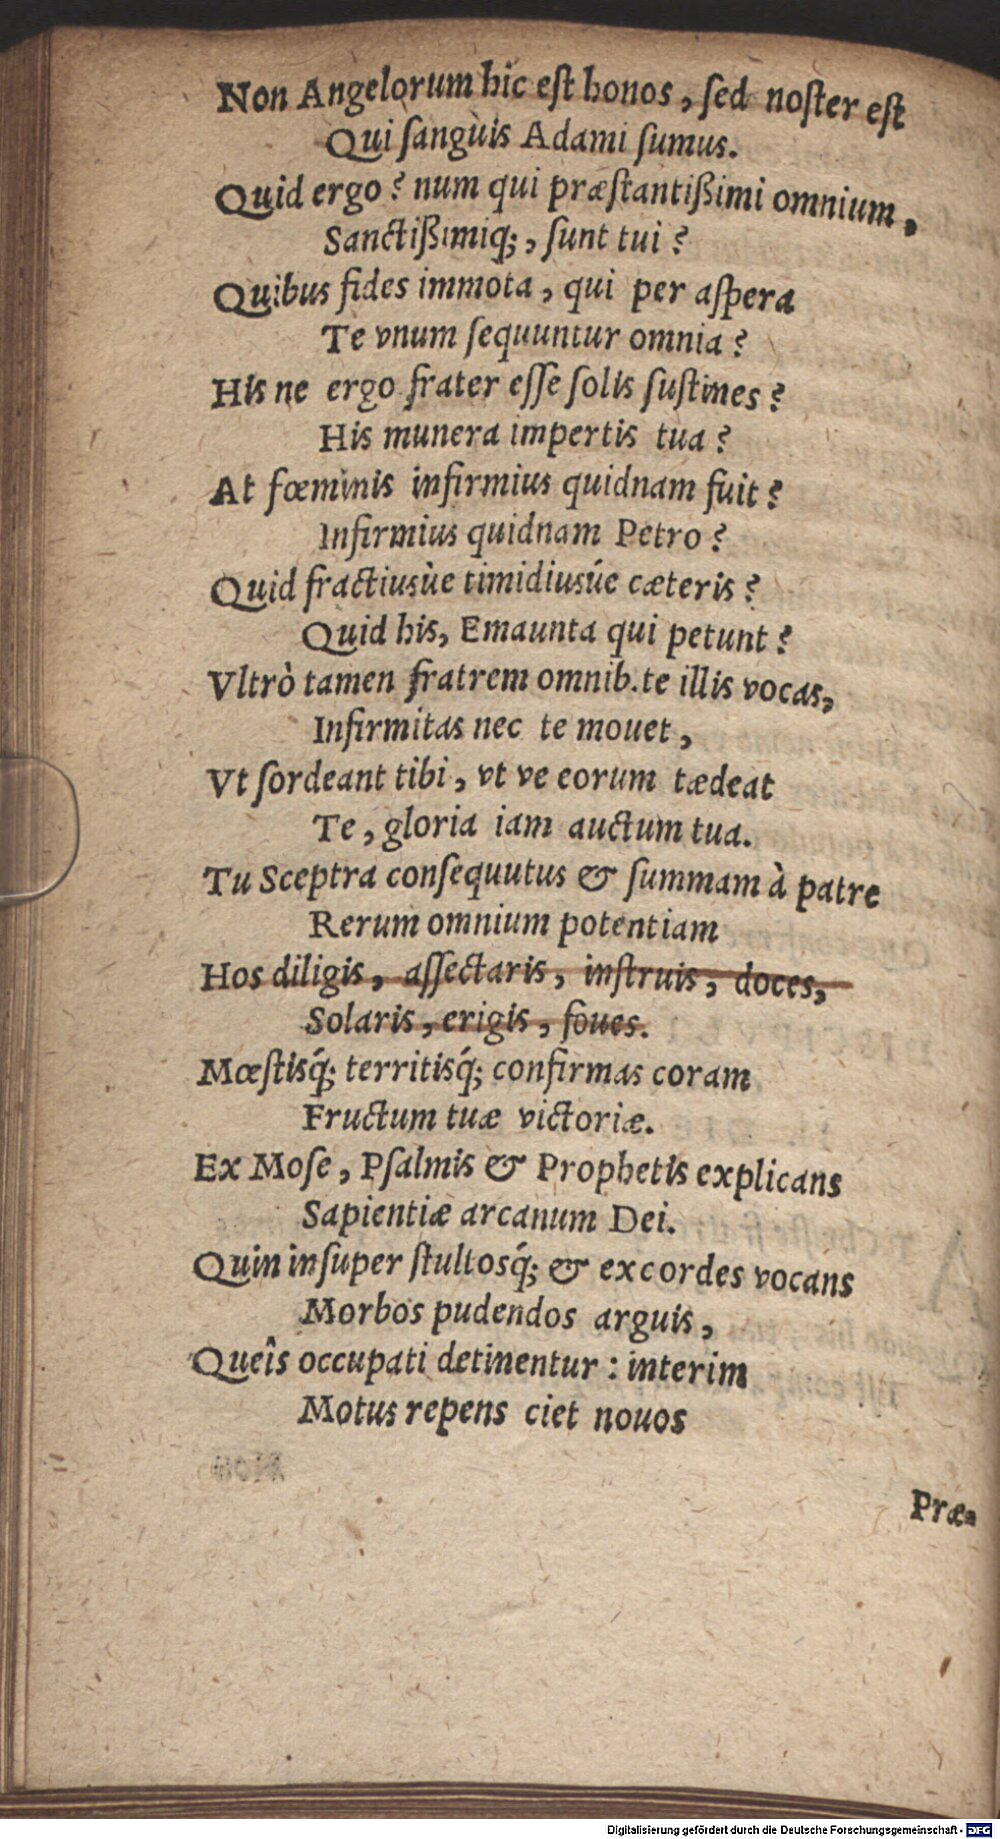 Non Angelorum hic eſt honos, ſed noſter eſt
Qui ſanguis Adami ſumus.
Quid ergo? num qui præſtantißimi omnium,
Sanctißimiq;, ſunt tui?
Quibus fides immota, qui per aſpera
Te vnum ſequuntur omnia?
His ne ergo frater eſſe ſolis ſuſtines?
His munera impertis tua?
At fœminis infirmius quidnam fuit?
Infirmius quidnam Petro?
Quid fractiusùe timidiusúe cæteris?
Quid his, Emaunta qui petunt?
Vltrò tamen fratrem omnib. te illis vocas,
Infirmitas nec te mouet,
Vt ſordeant tibi, vt ve eorum tædeat
Te, gloria iam auctum tua.
Tu Sceptra conſequutus & ſummam à patre
Rerum omnium potentiam
Hos diligis, aſſectaris, inſtruis, doces,
Solaris, erigis, foues.
Mœſtisq́; territisq́; confirmas coram
Fructum tuæ victoriæ.
Ex Moſe, Pſalmis & Prophetis explicans
Sapientiæ arcanum Dei.
Quin inſuper ſtultosq́; & excordes vocans
Morbos pudendos arguis,
Queîs occupati detinentur: interim
Motus repens ciet nouos
Præ-
Digitalisierung gefördert durch die Deutsche Forschungsgemeinschaft - DFG